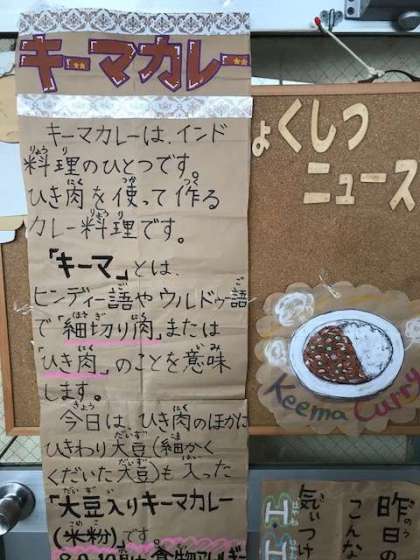 キーマカレー
キーマカレーは、インド
料理のひとつです。
ひき肉を使って作る
カレー料理です。
「キーマ」とは、
ヒンディー語やウルドゥー語
で「細切り肉」または
「ひき肉」のことを意味
します。
今日は、ひき肉のほかに
ひきわり大豆(細かく
くだいた大豆)も入った
「大豆入りキーマカレー
(米粉)」です。
ょくしつ
ニュース
Keema Curry
昨日の
こんな
気いつけ